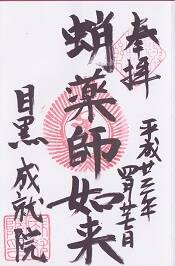 奉拝
平成廿三年
四月廿七日
蛸薬師如来
目黒 成就院